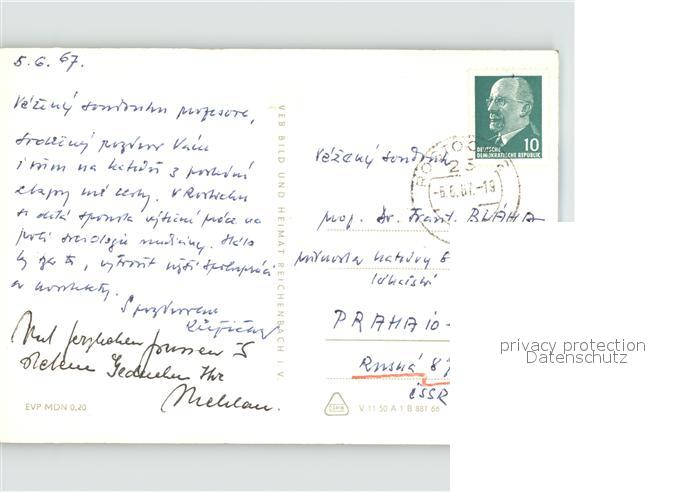 5.6.67.
Vážený soudruhu profesore,
srdečný pozdrav Vám
i všem na katedře z poslední
etapy mé cesty. V Rostocku
se dělá spousta výzkumné práce na
poli sociologie medicíny. Stálo
by za to, vytvořit užší spolupráci
a kontakty.
S pozdravem
Mit herzlichen Grüssen
Ihr
VEB BILD UND HEIMAT REICHENBACH I. V.
EVP MDN 0,20
V 11 50 A 1 B 881 66
10
DEUTSCHE
DEMOKRATISCHE REPUBLIK
ROSTOC
25
-6.6.67.-19
Vážený soudruh
prof. Dr. Frant. BLÁHA
přednosta katedry
lékařství
PRAHA 10-
Ruská 87
ČSSR
privacy protection
Datenschutz